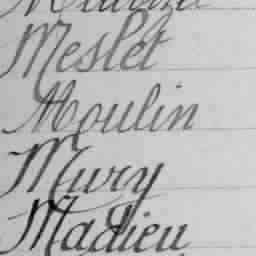 Meslet
Moulin
Mury
Madieu